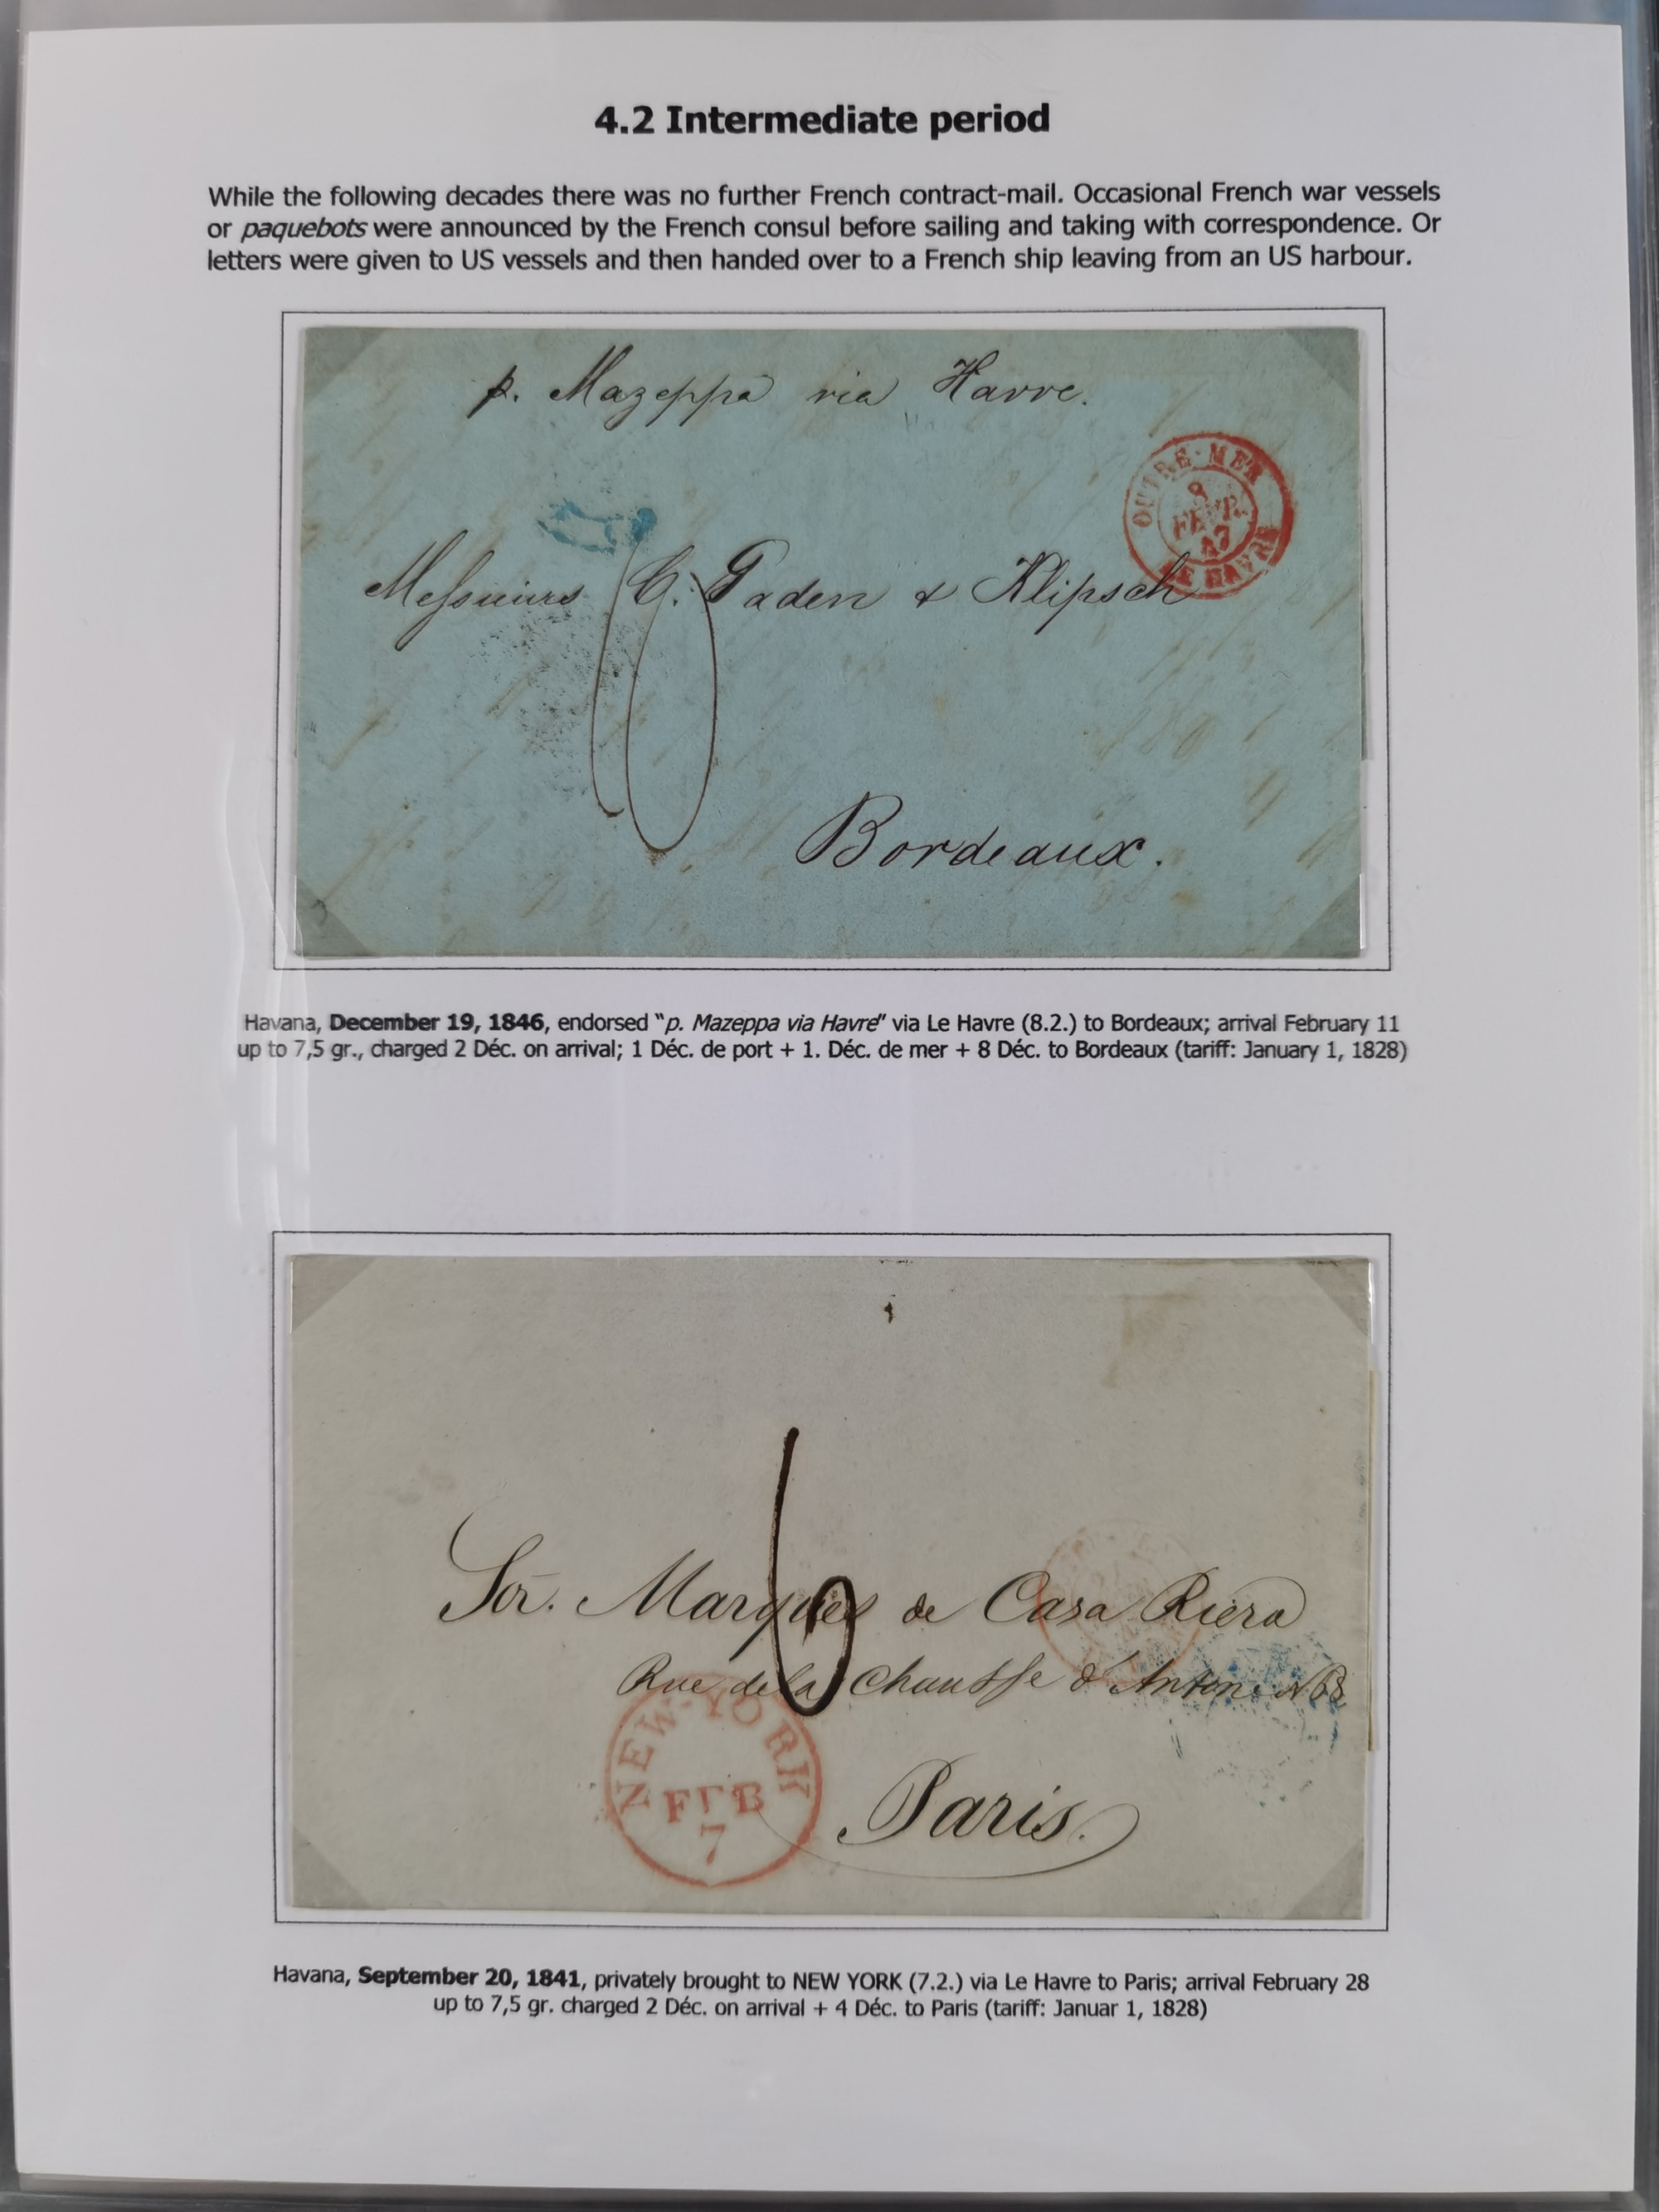 4.2 Intermediate period
While the following decades there was no further French contract-mail. Occasional French war vessels
or paquebots were announced by the French consul before sailing and taking with correspondence. Or
letters were given to US vessels and then handed over to a French ship leaving from an US harbour.
p. Mazeppa via Havre.
OUTRE-MER
8
FEVR.
47
LE HAVRE
Messieurs C. Gaden & Klipsch
10
Bordeaux.
Havana, December 19, 1846, endorsed "p. Mazeppa via Havre" via Le Havre (8.2.) to Bordeaux; arrival February 11
up to 7,5 gr., charged 2 Déc. on arrival; 1 Déc. de port + 1. Déc. de mer + 8 Déc. to Bordeaux (tariff: January 1, 1828)
6
Sor. Marques de Casa Riera
Rue de la Chausse d'Antin N
NEW-YORK
FEB
7
Paris.
Havana, September 20, 1841, privately brought to NEW YORK (7.2.) via Le Havre to Paris; arrival February 28
up to 7,5 gr. charged 2 Déc. on arrival + 4 Déc. to Paris (tariff: Januar 1, 1828)